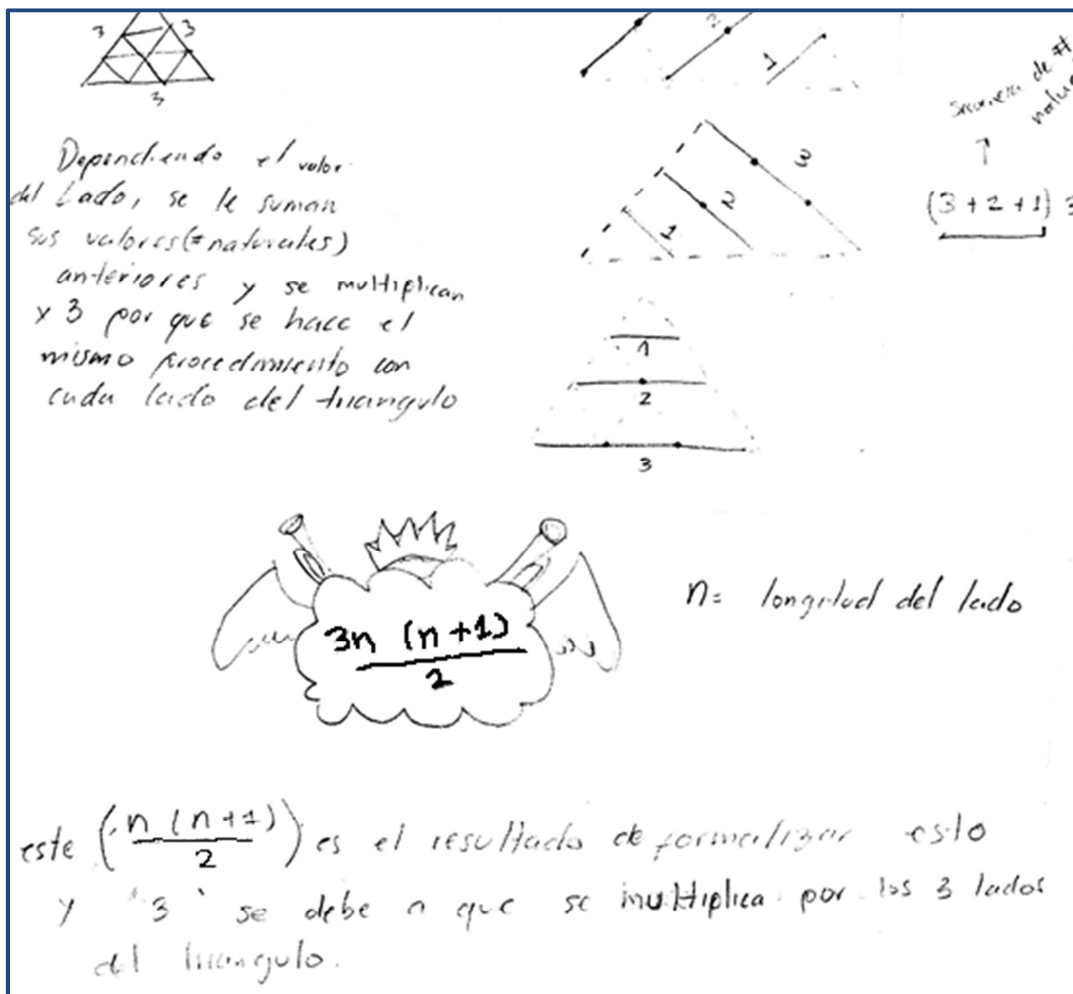 3 3
3
2
1
Secuencia de #
(3 + 2 + 1) 3
Dependiendo el valor
del Lado, se le suman
sus valores (# naturales)
anteriores y se multiplican
x 3 por que se hace el
mismo procedimiento con
cada lado del triangulo
3
2
1
1
2
3
3n (n+1)
2
n= longitud del lado
este (n (n+1)
2) es el resultado de formalizar esto
y "3" se debe a que se multiplica por los 3 lados
del triangulo.